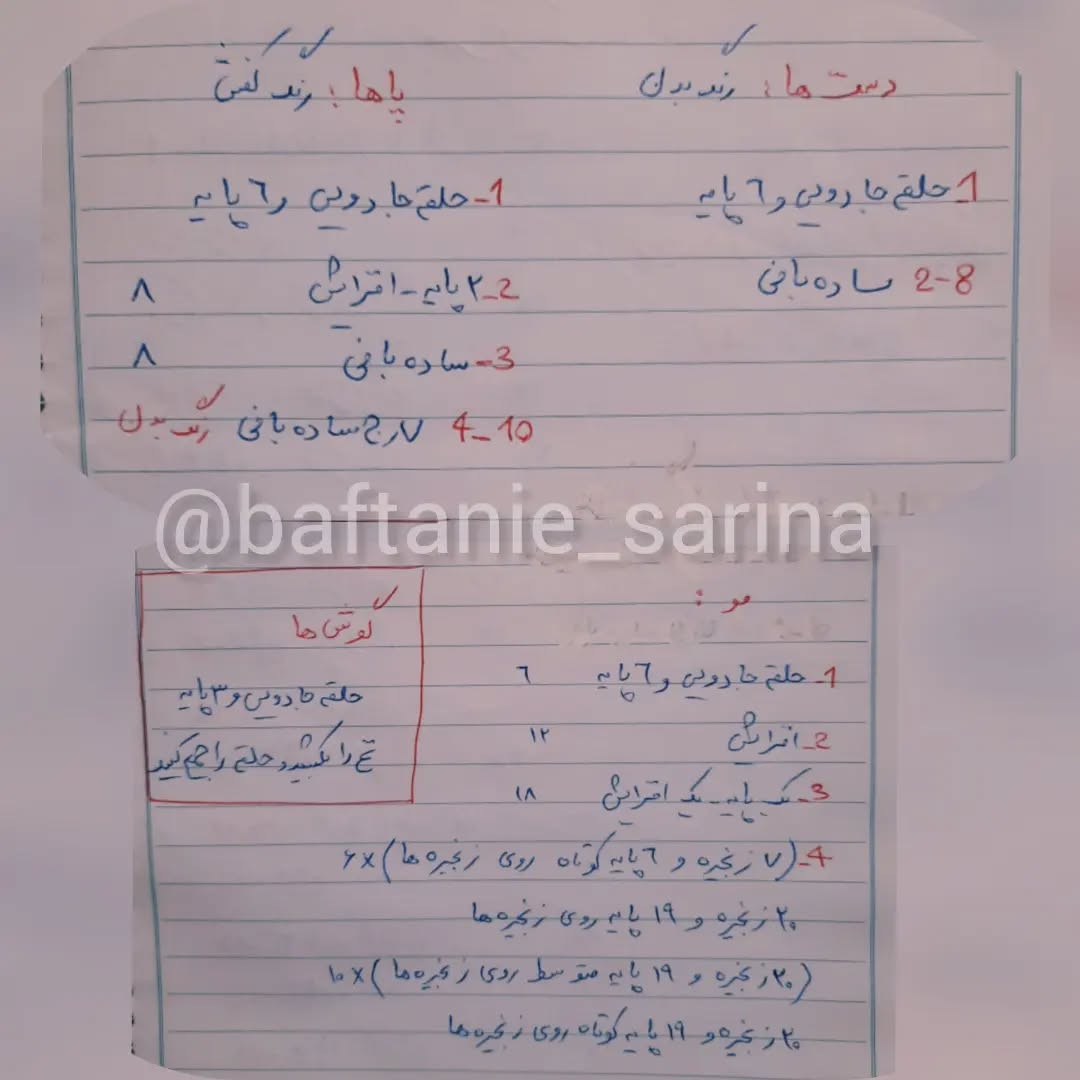 دست ها: رنگ بدن
1_ حلقه جادویی و ٦ پایه
2-8 ساده بافی
پاها: رنگ کفش
1_ حلقه جادویی و ٦ پایه
2_ ٣ پایه - افزایش ٨
3_ ساده بافی ٨
4_10 ٧ رج ساده بافی رنگ بدن
@baftanie_sarina
مو:
1_ حلقه جادویی و ٦ پایه ٦
2_ افزایش ١٢
3_ یک پایه - یک افزایش ١٨
4_ (٧ زنجیره و ٦ پایه کوتاه روی زنجیره ها) × ۶
٢٠ زنجیره و ١٩ پایه روی زنجیره ها
(٢٠ زنجیره و ١٩ پایه متوسط روی زنجیره ها) × ١٠
٢٠ زنجیره و ١٩ پایه کوتاه روی زنجیره ها
گوش ها
حلقه جادویی و ٣ پایه
نخ را بکشید و حلقه را جمع کنید